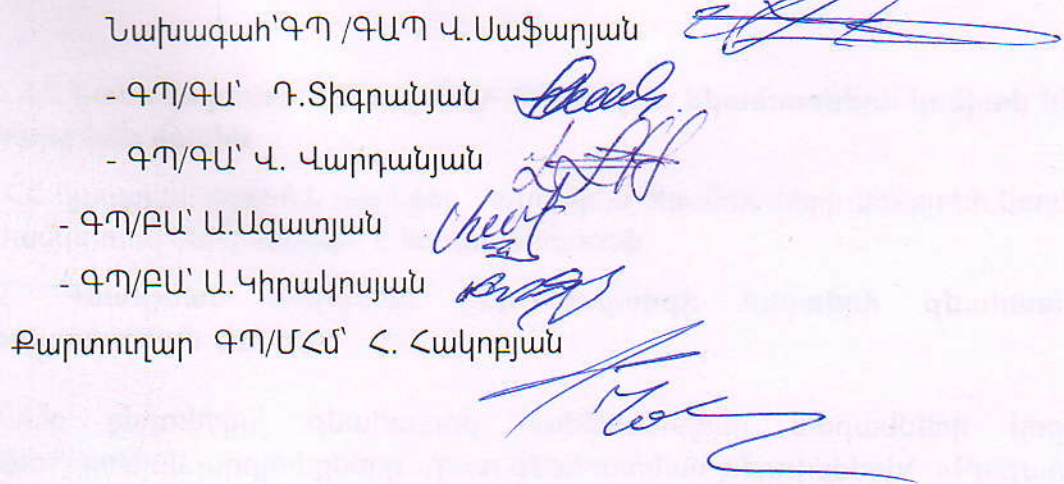 Նախագահ՝ԳՊ /ԳԱՊ Վ.Սաֆարյան
- ԳՊ/ԳԱ՝ Դ.Տիգրանյան
- ԳՊ/ԳԱ՝ Վ. Վարդանյան
- ԳՊ/ԲԱ՝ Ա.Ազատյան
- ԳՊ/ԲԱ՝ Ա.Կիրակոսյան
Քարտուղար ԳՊ/ՄՀմ՝ Հ. Հակոբյան